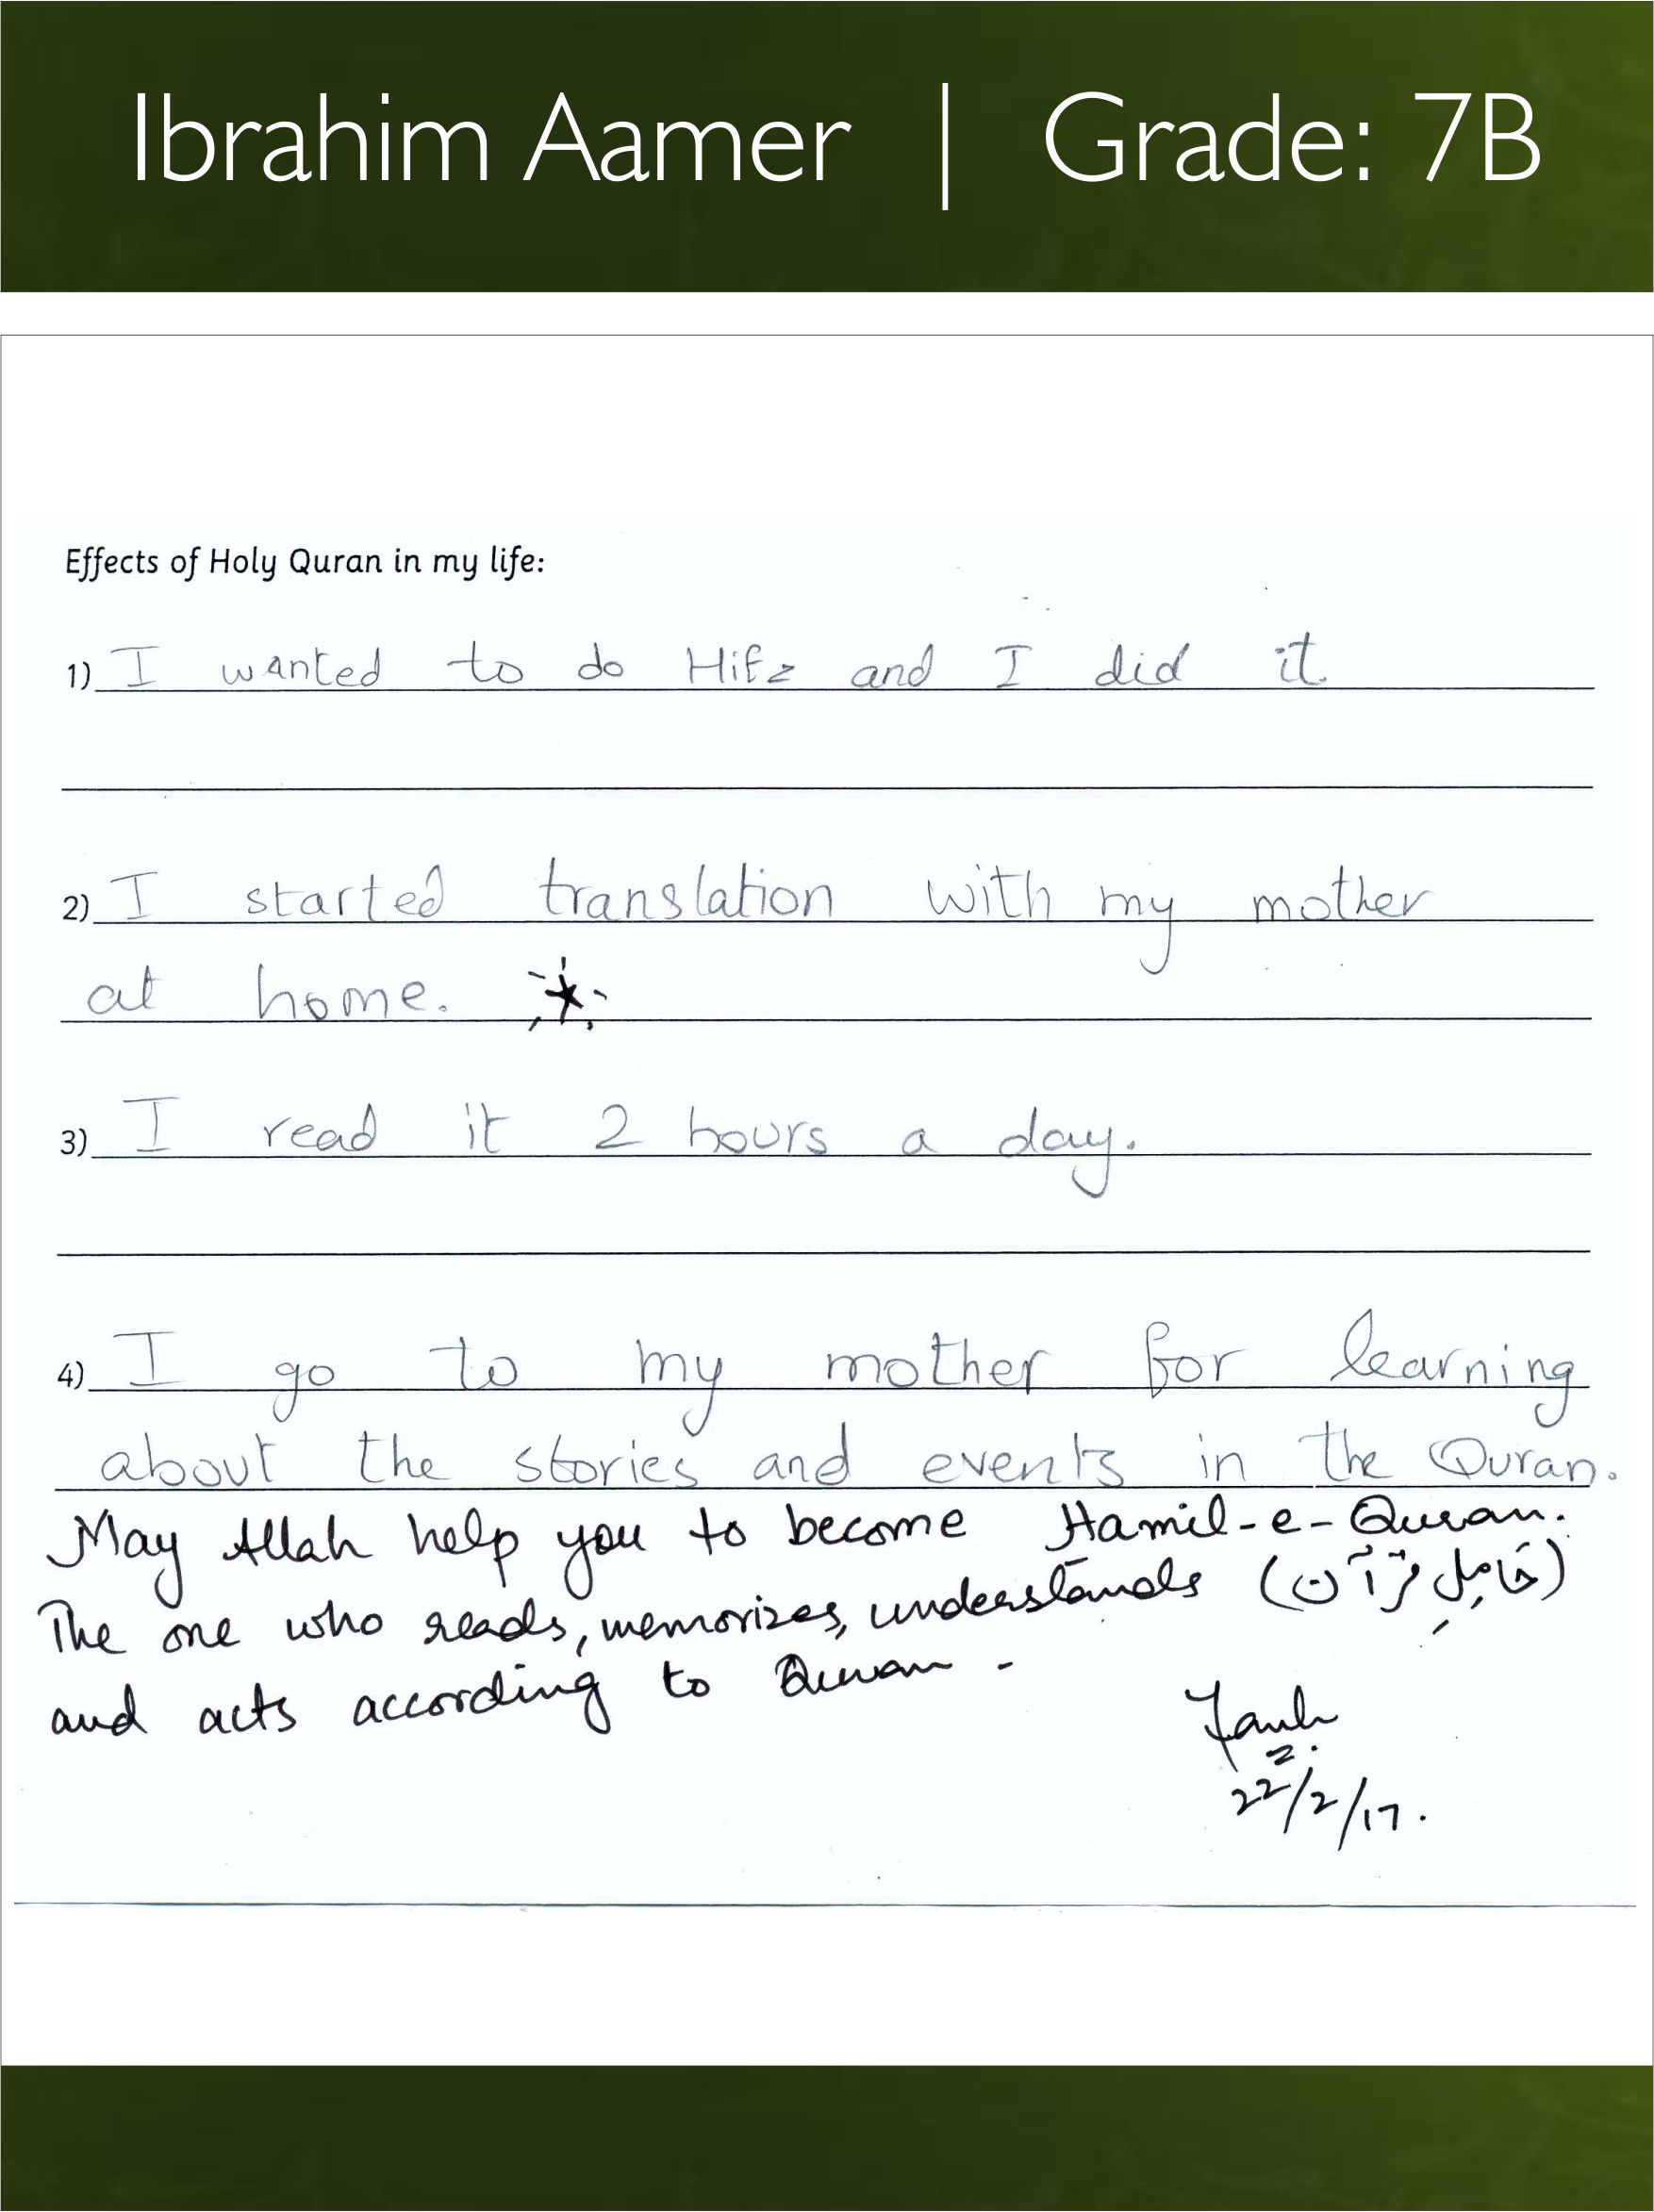 Ibrahim Aamer | Grade: 7B
Effects of Holy Quran in my life:
1) I wanted to do Hifz and I did it.
2) I started translation with my mother
at home.
3) I read it 2 hours a day.
4) I go to my mother for learning
about the stories and events in the Quran.
May Allah help you to become Hamil-e-Quran.
The one who reads, memorizes, understands (حَامِلِ قرآن)
and acts according to Quran -
22/2/17.